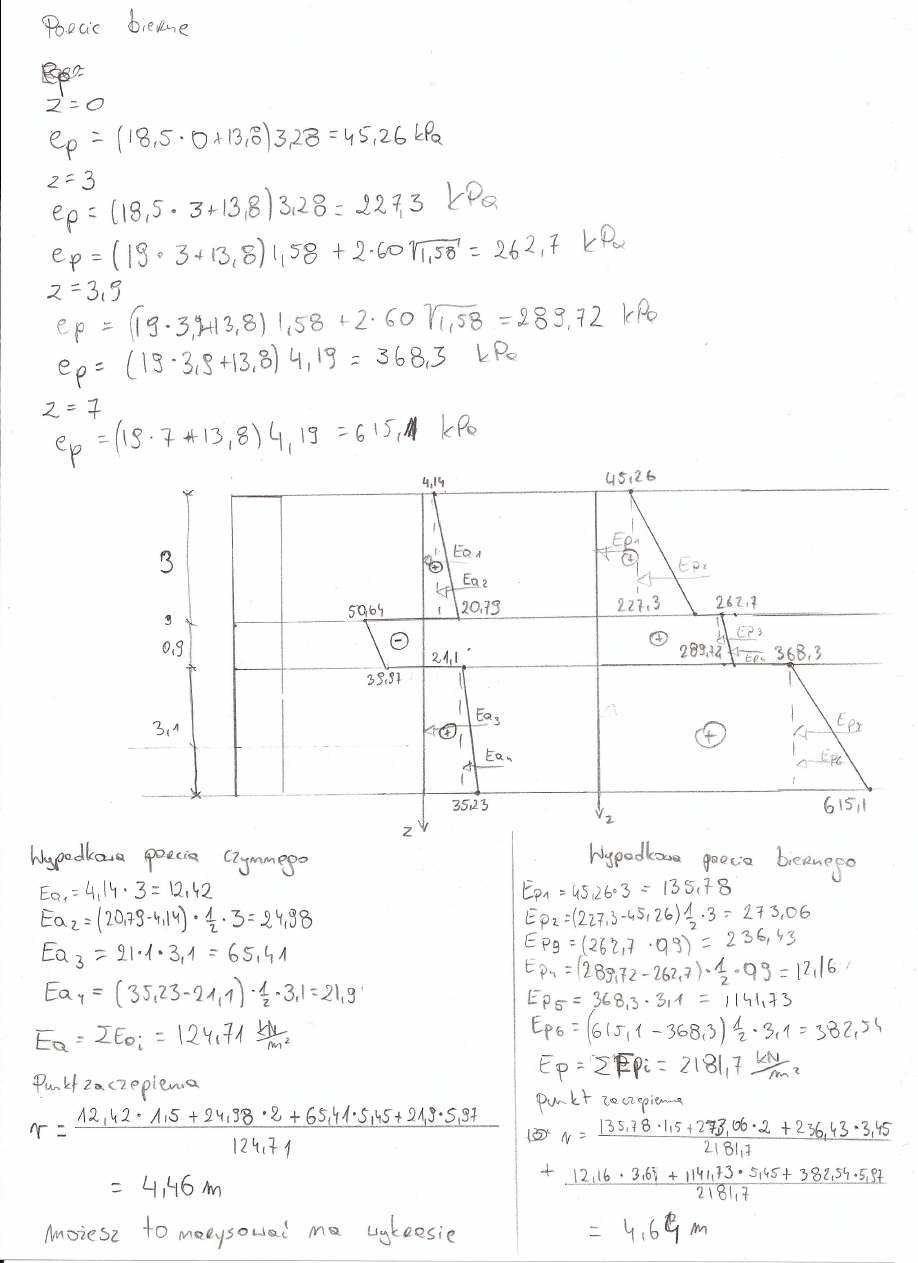 Parcie bierne
z=0
ep = (18,5·0+13,8)3,28 = 45,26 kPa
z=3
ep = (18,5·3+13,8)3,28 = 227,3 kPa
ep = (19·3+13,8)1,58 + 2·60√1,58 = 262,7 kPa
z=3,9
ep = (19·3,9+13,8)1,58 + 2·60√1,58 = 289,72 kPa
ep = (19·3,9+13,8)4,19 = 368,3 kPa
z=7
ep = (19·7+13,8)4,19 = 615,1 kPa
4,14
45,26
3
Ea1
Ea2
20,79
Ep1
Ep2
227,3
262,7
50,64
0,9
−
39,97
21,1
+
289,72
Ep3
Ep4
368,3
3,1
+
Ea3
Ea4
35,23
z
+
Ep6
615,1
z
Wypadkowa parcia czynnego
Ea1 = 4,14·3 = 12,42
Ea2 = (20,79-4,14)·1/2·3 = 24,98
Ea3 = 21·1·3,1 = 65,41
Ea4 = (35,23-21,1)·1/2·3,1 = 21,9
Ea = ΣEai = 124,71 kN/m²
Punkt zaczepienia
r = (12,42·1,5+24,98·2+65,41·5,45+21,9·5,97)/124,71
= 4,46 m
Możesz to narysować na wykresie
Wypadkowa parcia biernego
Ep1 = 45,26·3 = 135,78
Ep2 = (227,3-45,26)1/2·3 = 273,06
Ep3 = (262,7·0,9) = 236,43
Ep4 = (289,72-262,7)·1/2·0,9 = 12,16
Ep5 = 368,3·3,1 = 1141,73
Ep6 = (615,1-368,3)1/2·3,1 = 382,54
Ep = ΣEpi = 2181,7 kN/m²
punkt zaczepienia
r = (135,78·1,5+273,06·2+236,43·3,45)/2181,7
+ (12,16·3,6 + 1141,73·5,45+382,54·5,97)/2181,7
= 4,64 m